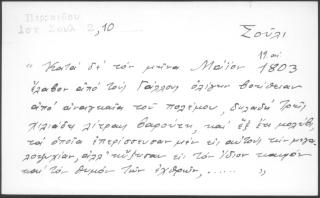 Περραιβού
Ιστ Σουλ 2, 10
Σούλι
19 αι
" Κατά δε τον μήνα Μαΐον 1803
έλαβον από τους Γάλλους ολίγην βοήθειαν
από αναγκαία του πολέμου, δηλαδή τρεις
χιλιάδες λίτρας βαρούτι, και έξ έτι μολύβι,
τα οποία επερίσσευσαν μεν εις αυτούς την μεγα
λοψυχίαν, αλλ' ηύξησαν εις τον ίδιον καιρόν
και τον θυμόν των εχθρών, ...... "